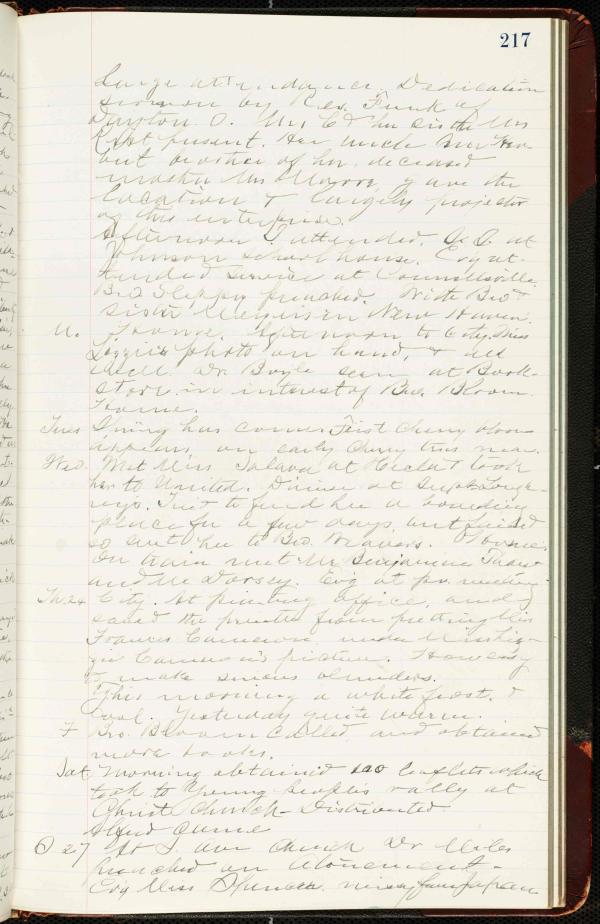 217
Large attendance. Dedication
sermon by Rev. Funk of
Dayton O. Mrs
present. Her uncle
brother of her deceased
mother Mrs gave the
location & largely projector
of this enterprise.
Afternoon I attended. S. S. at
Johnson school house. Evg at-
tended service at Connellsville.
Bro. preached. With Bro &
Sister in New Haven.
M. Home. Afternoon to City. Miss
Lizzie's photo on hand, &
well. Dr. Boyle seen at Book-
store in interest of Bro. Bloom.
Home.
Tues Spring has come. First cherry
appears, on early cherry tree near.
Wed. Met Miss at Hecla & took
her to United. Dinner at
Tried to find her a boarding
place for a few days, but failed
so sent her to Bro. Weavers. Home.
On train met Mr. Benjamin Thaw
and Mr Dorsey. Evg at pr. meeting
Th. 24 City. At printing office, and
saved the printer from putting Miss
Frances Cameron under Miss
Cameron's picture. How easy
to make serious blunders.
This morning a white frost, &
cool. Yesterday quite warm.
F Bro. Bloom called, and obtained
more books.
Sat Morning obtained 100 leaflets which
took to Young People's rally at
Christ Church - Distributed
& came
27 At Ave Church Dr Miles
preached on Atonement -
Evg Miss Spencer, from Japan